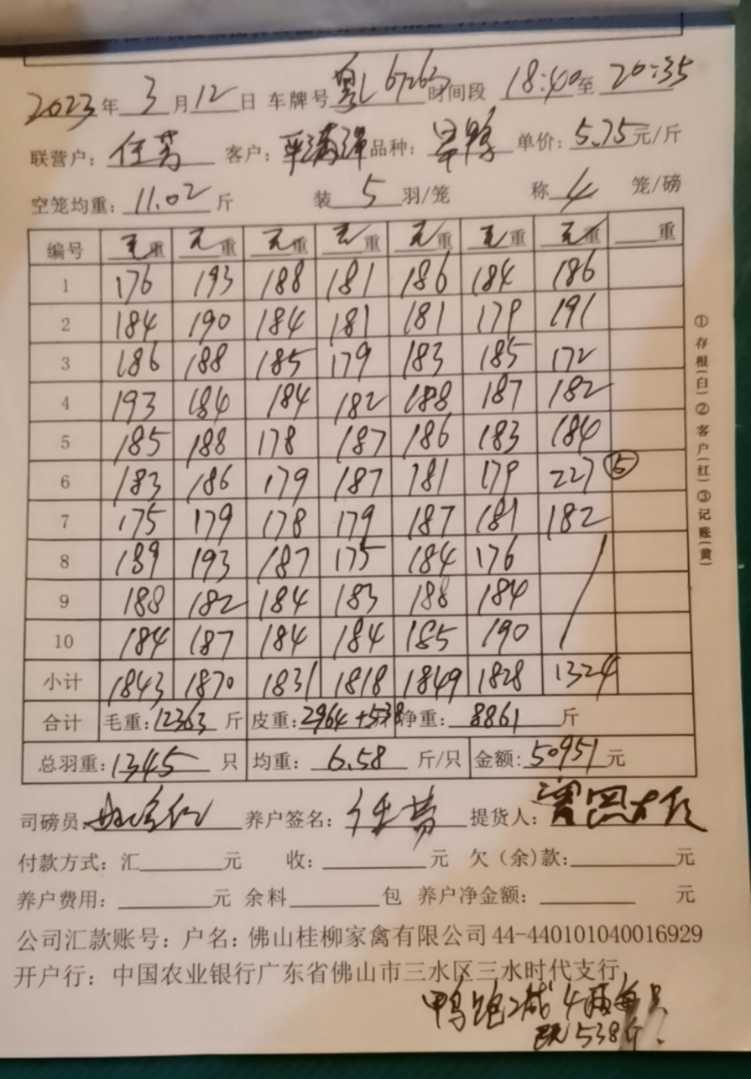 2023年3月12日 车牌号 粤L67263 时间段 18:40至20:35
联营户：任 客户： 品种： 鸭 单价：5.75元/斤
空笼均重：11.02斤 装5羽/笼 称4笼/磅
编号 毛重 毛重 毛重 毛重 毛重 毛重 毛重 重
1 176 193 188 181 186 184 186
2 184 190 184 181 181 179 191
3 186 188 185 179 183 185 172
4 193 184 184 182 188 187 182
5 185 188 178 187 186 183 184
6 183 186 179 187 181 179 227 ⑤
7 175 179 178 179 187 181 182
8 189 193 187 175 184 176
9 188 182 184 183 188 184
10 184 187 184 184 185 190
小计 1843 1870 1831 1818 1849 1828 1324
合计 毛重：12363斤 皮重：2964+538 净重：8861斤
总羽重：1345只 均重：6.58斤/只 金额：50951元
司磅员： 养户签名：任 提货人：
付款方式：汇 元 收： 元 欠（余）款： 元
养户费用： 元 余料 包 养户净金额： 元
公司汇款账号：户名：佛山桂柳家禽有限公司44-440101040016929
开户行：中国农业银行广东省佛山市三水区三水时代支行
鸭饱减4两每只
538斤.
①存根(白)②客户(红)③记账(黄)